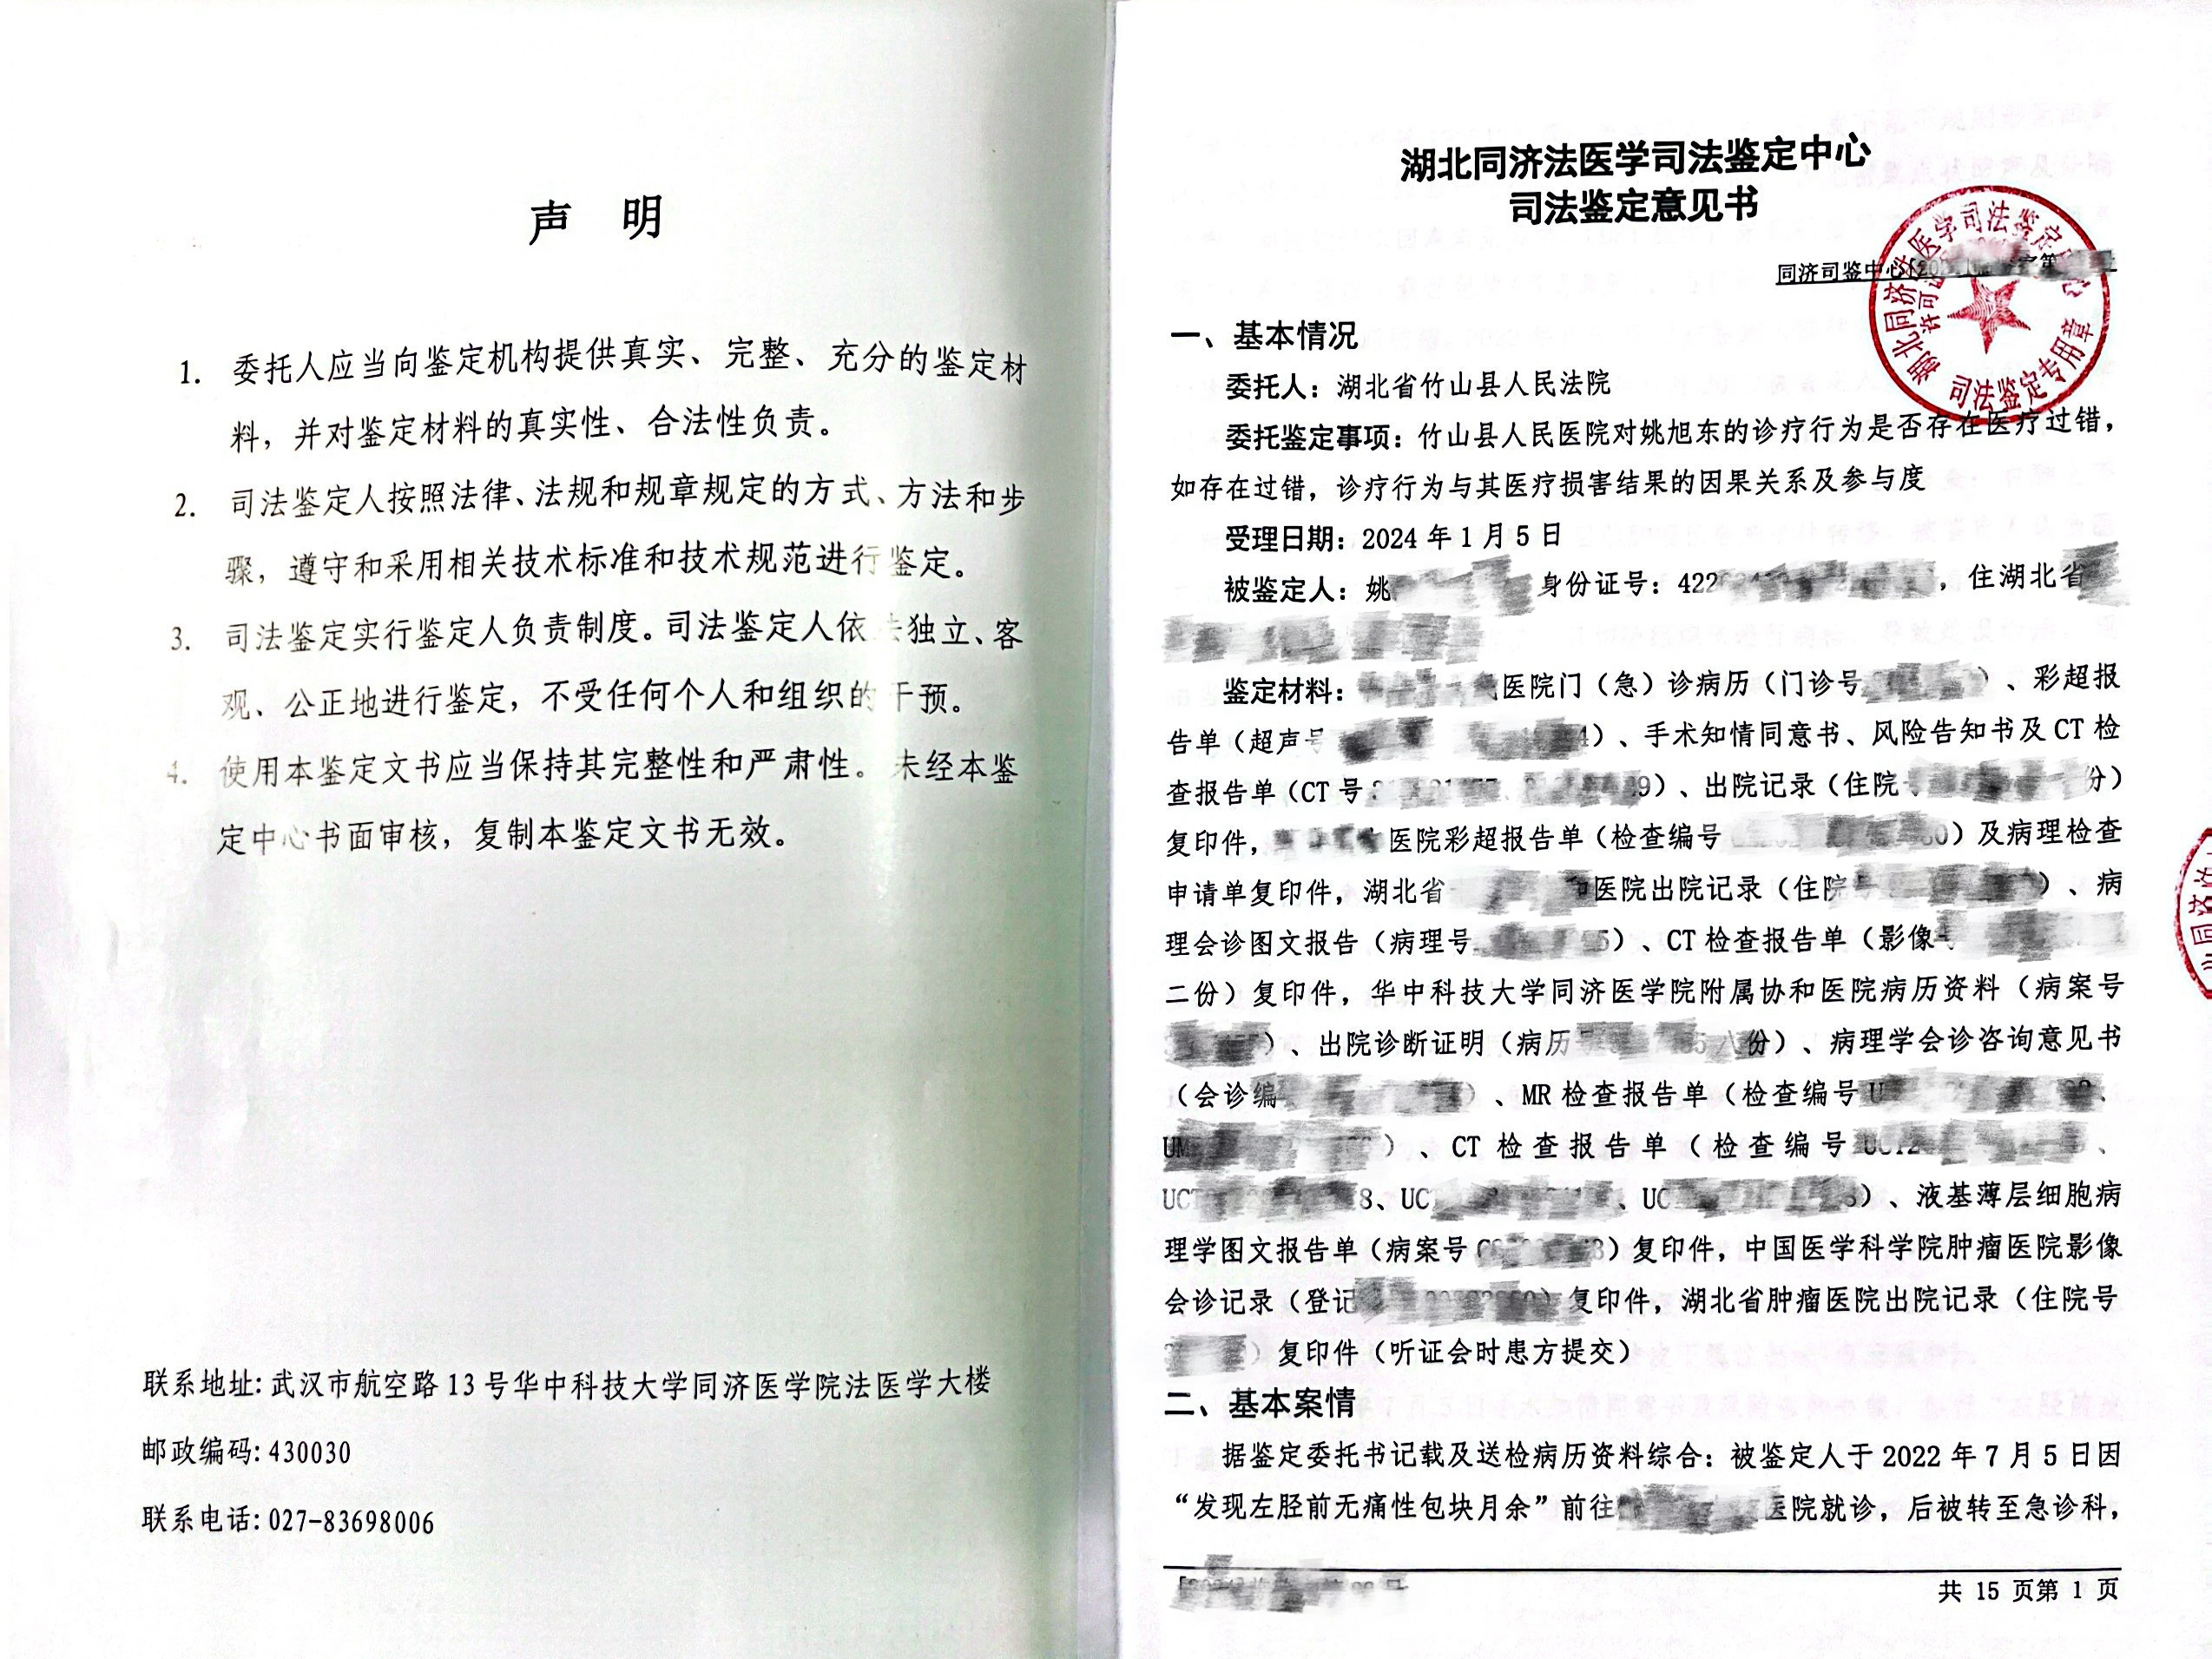 声 明
1. 委托人应当向鉴定机构提供真实、完整、充分的鉴定材
料，并对鉴定材料的真实性、合法性负责。
2. 司法鉴定人按照法律、法规和规章规定的方式、方法和步
骤，遵守和采用相关技术标准和技术规范进行鉴定。
3. 司法鉴定实行鉴定人负责制度。司法鉴定人依 独立、客
观、公正地进行鉴定，不受任何个人和组织的干预。
4. 使用本鉴定文书应当保持其完整性和严肃性。未经本鉴
定中心书面审核，复制本鉴定文书无效。
联系地址：武汉市航空路 13 号华中科技大学同济医学院法医学大楼
邮政编码：430030
联系电话：027-83698006
湖北同济法医学司法鉴定中心
司法鉴定意见书
同济司鉴中心
湖北同济法医学司法鉴定中心
司法鉴定专用章
一、基本情况
委托人：湖北省竹山县人民法院
委托鉴定事项：竹山县人民医院对姚旭东的诊疗行为是否存在医疗过错，
如存在过错，诊疗行为与其医疗损害结果的因果关系及参与度
受理日期：2024 年 1 月 5 日
被鉴定人：姚 身份证号：422 ，住湖北省
鉴定材料： 医院门（急）诊病历（门诊号 ）、彩超报
告单（超声号 ）、手术知情同意书、风险告知书及 CT 检
查报告单（CT 号 9）、出院记录（住院 份）
复印件， 医院彩超报告单（检查编号 ）及病理检查
申请单复印件，湖北省 医院出院记录（住院号 ）、病
理会诊图文报告（病理号 ）、CT 检查报告单（影像
二份）复印件，华中科技大学同济医学院附属协和医院病历资料（病案号
）、出院诊断证明（病历 份）、病理学会诊咨询意见书
（会诊编 ）、MR 检查报告单（检查编号 U 、
UM ）、CT 检查报告单（检查编号 、
UCT 8、UC 、UC ）、液基薄层细胞病
理学图文报告单（病案号 ）复印件，中国医学科学院肿瘤医院影像
会诊记录（登记 ）复印件，湖北省肿瘤医院出院记录（住院号
）复印件（听证会时患方提交）
二、基本案情
据鉴定委托书记载及送检病历资料综合：被鉴定人于 2022 年 7 月 5 日因
“发现左胫前无痛性包块月余”前往 医院就诊，后被转至急诊科，
共 15 页第 1 页